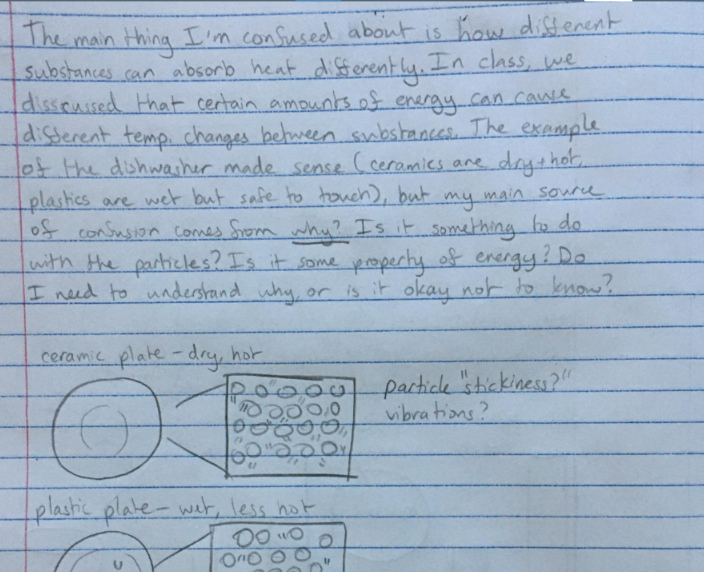 The main thing I'm confused about is how different
substances can absorb heat differently. In class, we
disscussed that certain amounts of energy can cause
different temp. changes between substances. The example
of the dishwasher made sense (ceramics are dry + hot,
plastics are wet but safe to touch), but my main source
of confusion comes from why? Is it something to do
with the particles? Is it some property of energy? Do
I need to understand why, or is it okay not to know?
ceramic plate - dry, hot
particle "stickiness?"
vibrations?
plastic plate - wet, less hot